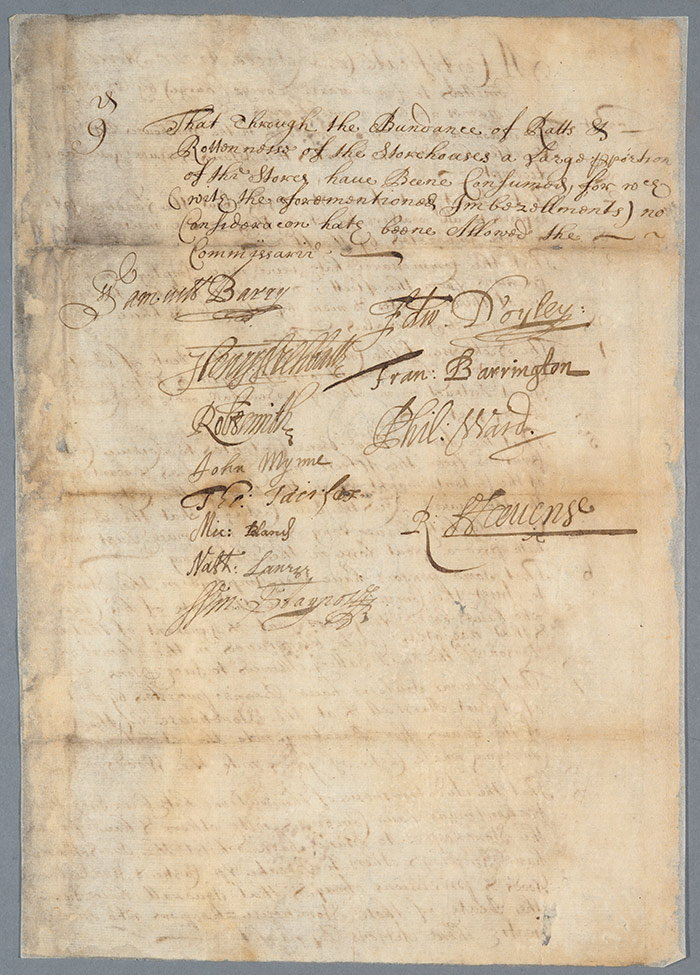 9
That Through the Bundance of Ratts &
Rottenness of the Storehouses a Large pportion
of the Stores have Beene Consumed, for wch
(with the aforementioned Imbezellments) no
Consideracon hath beene Allowed the
Commissaries
Samuell Barry
Edw: Doyley:
Henry Archbould
Fran: Barrington
Robt Smith
Phil: Ward.
John Mynne
Tho: Fairfax
Mic: Bland
R: Stevens
Natt:
Wm: